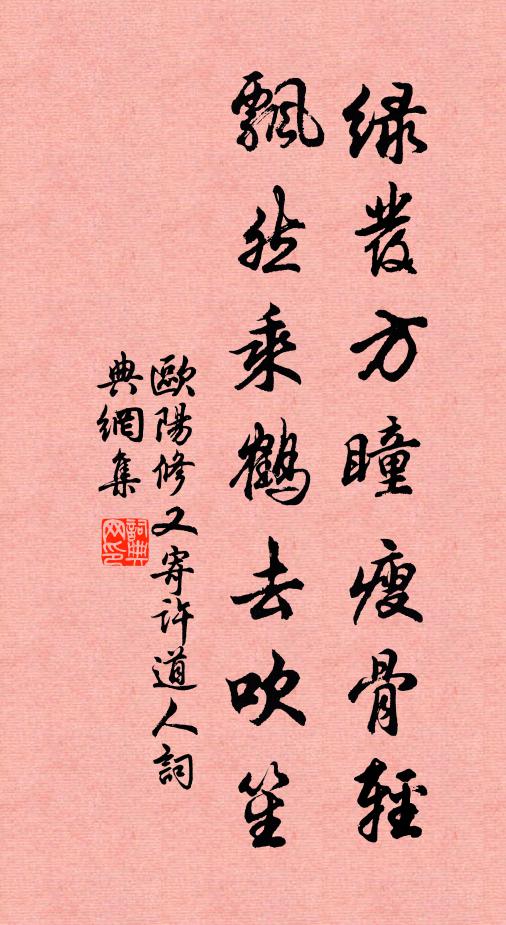 綠發方瞳瘦骨輕
飄然乘鶴去吹笙
歐陽修又寄許道人詞
典網集
詞典網印